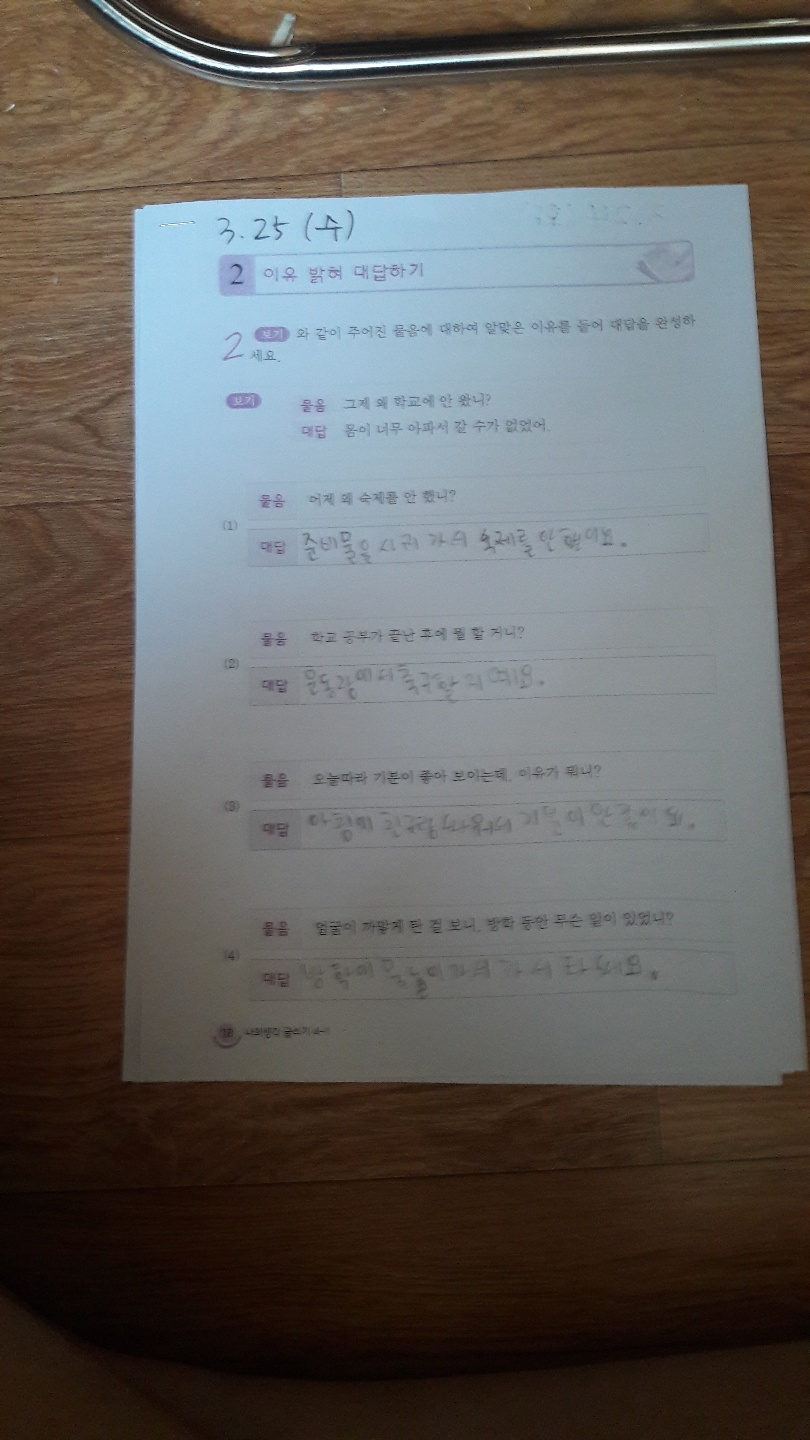 3.25 (수)
2 이유 밝혀 대답하기
2 보기 와 같이 주어진 물음에 대하여 알맞은 이유를 들어 대답을 완성하
세요.
보기 물음 그제 왜 학교에 안 왔니?
대답 몸이 너무 아파서 갈 수가 없었어.
물음 어제 왜 숙제를 안 했니?
(1)
대답 준비물을 사러 가서 숙제를 안 했어요.
물음 학교 공부가 끝난 후에 뭘 할 거니?
(2)
대답 운동장에서 축구할
물음 오늘따라 기분이 좋아 보이는데, 이유가 뭐니?
(3)
대답 아침에
물음 얼굴이 까맣게 탄 걸 보니, 방학 동안 무슨 일이 있었니?
(4)
대답
18 나의생각 글쓰기